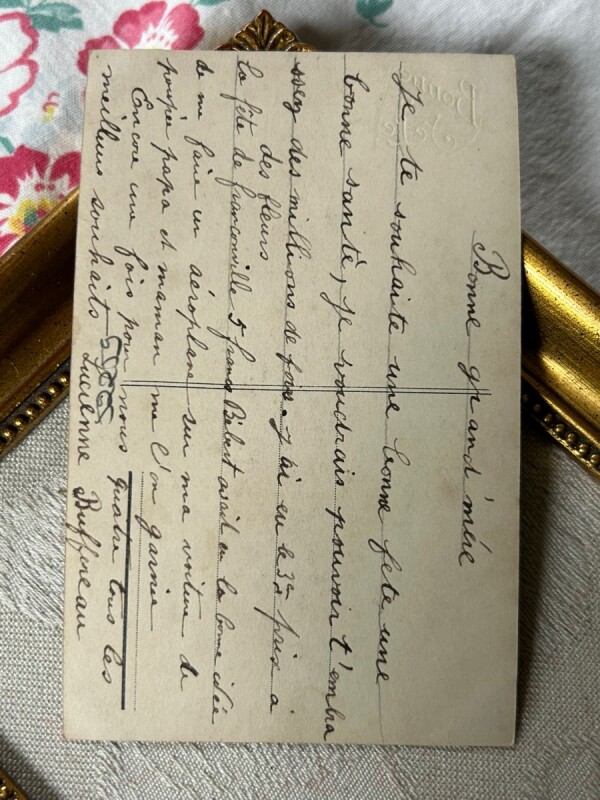 Bonne grand'mère
Je te souhaite une bonne fete une
bonne santé, je voudrais pouvoir t'emba
sser des millions de fois. J'ai eu le 3me prix à
des fleurs
la fête de franconville 5 francs Bébert avait eu la bonne idée
de me faire un aéroplane sur ma voiture de
poupée papa et maman me l'on garnie
Encore une fois pour nous quatre tous les
meilleurs souhaits
Lucienne Buffineau
Bonne